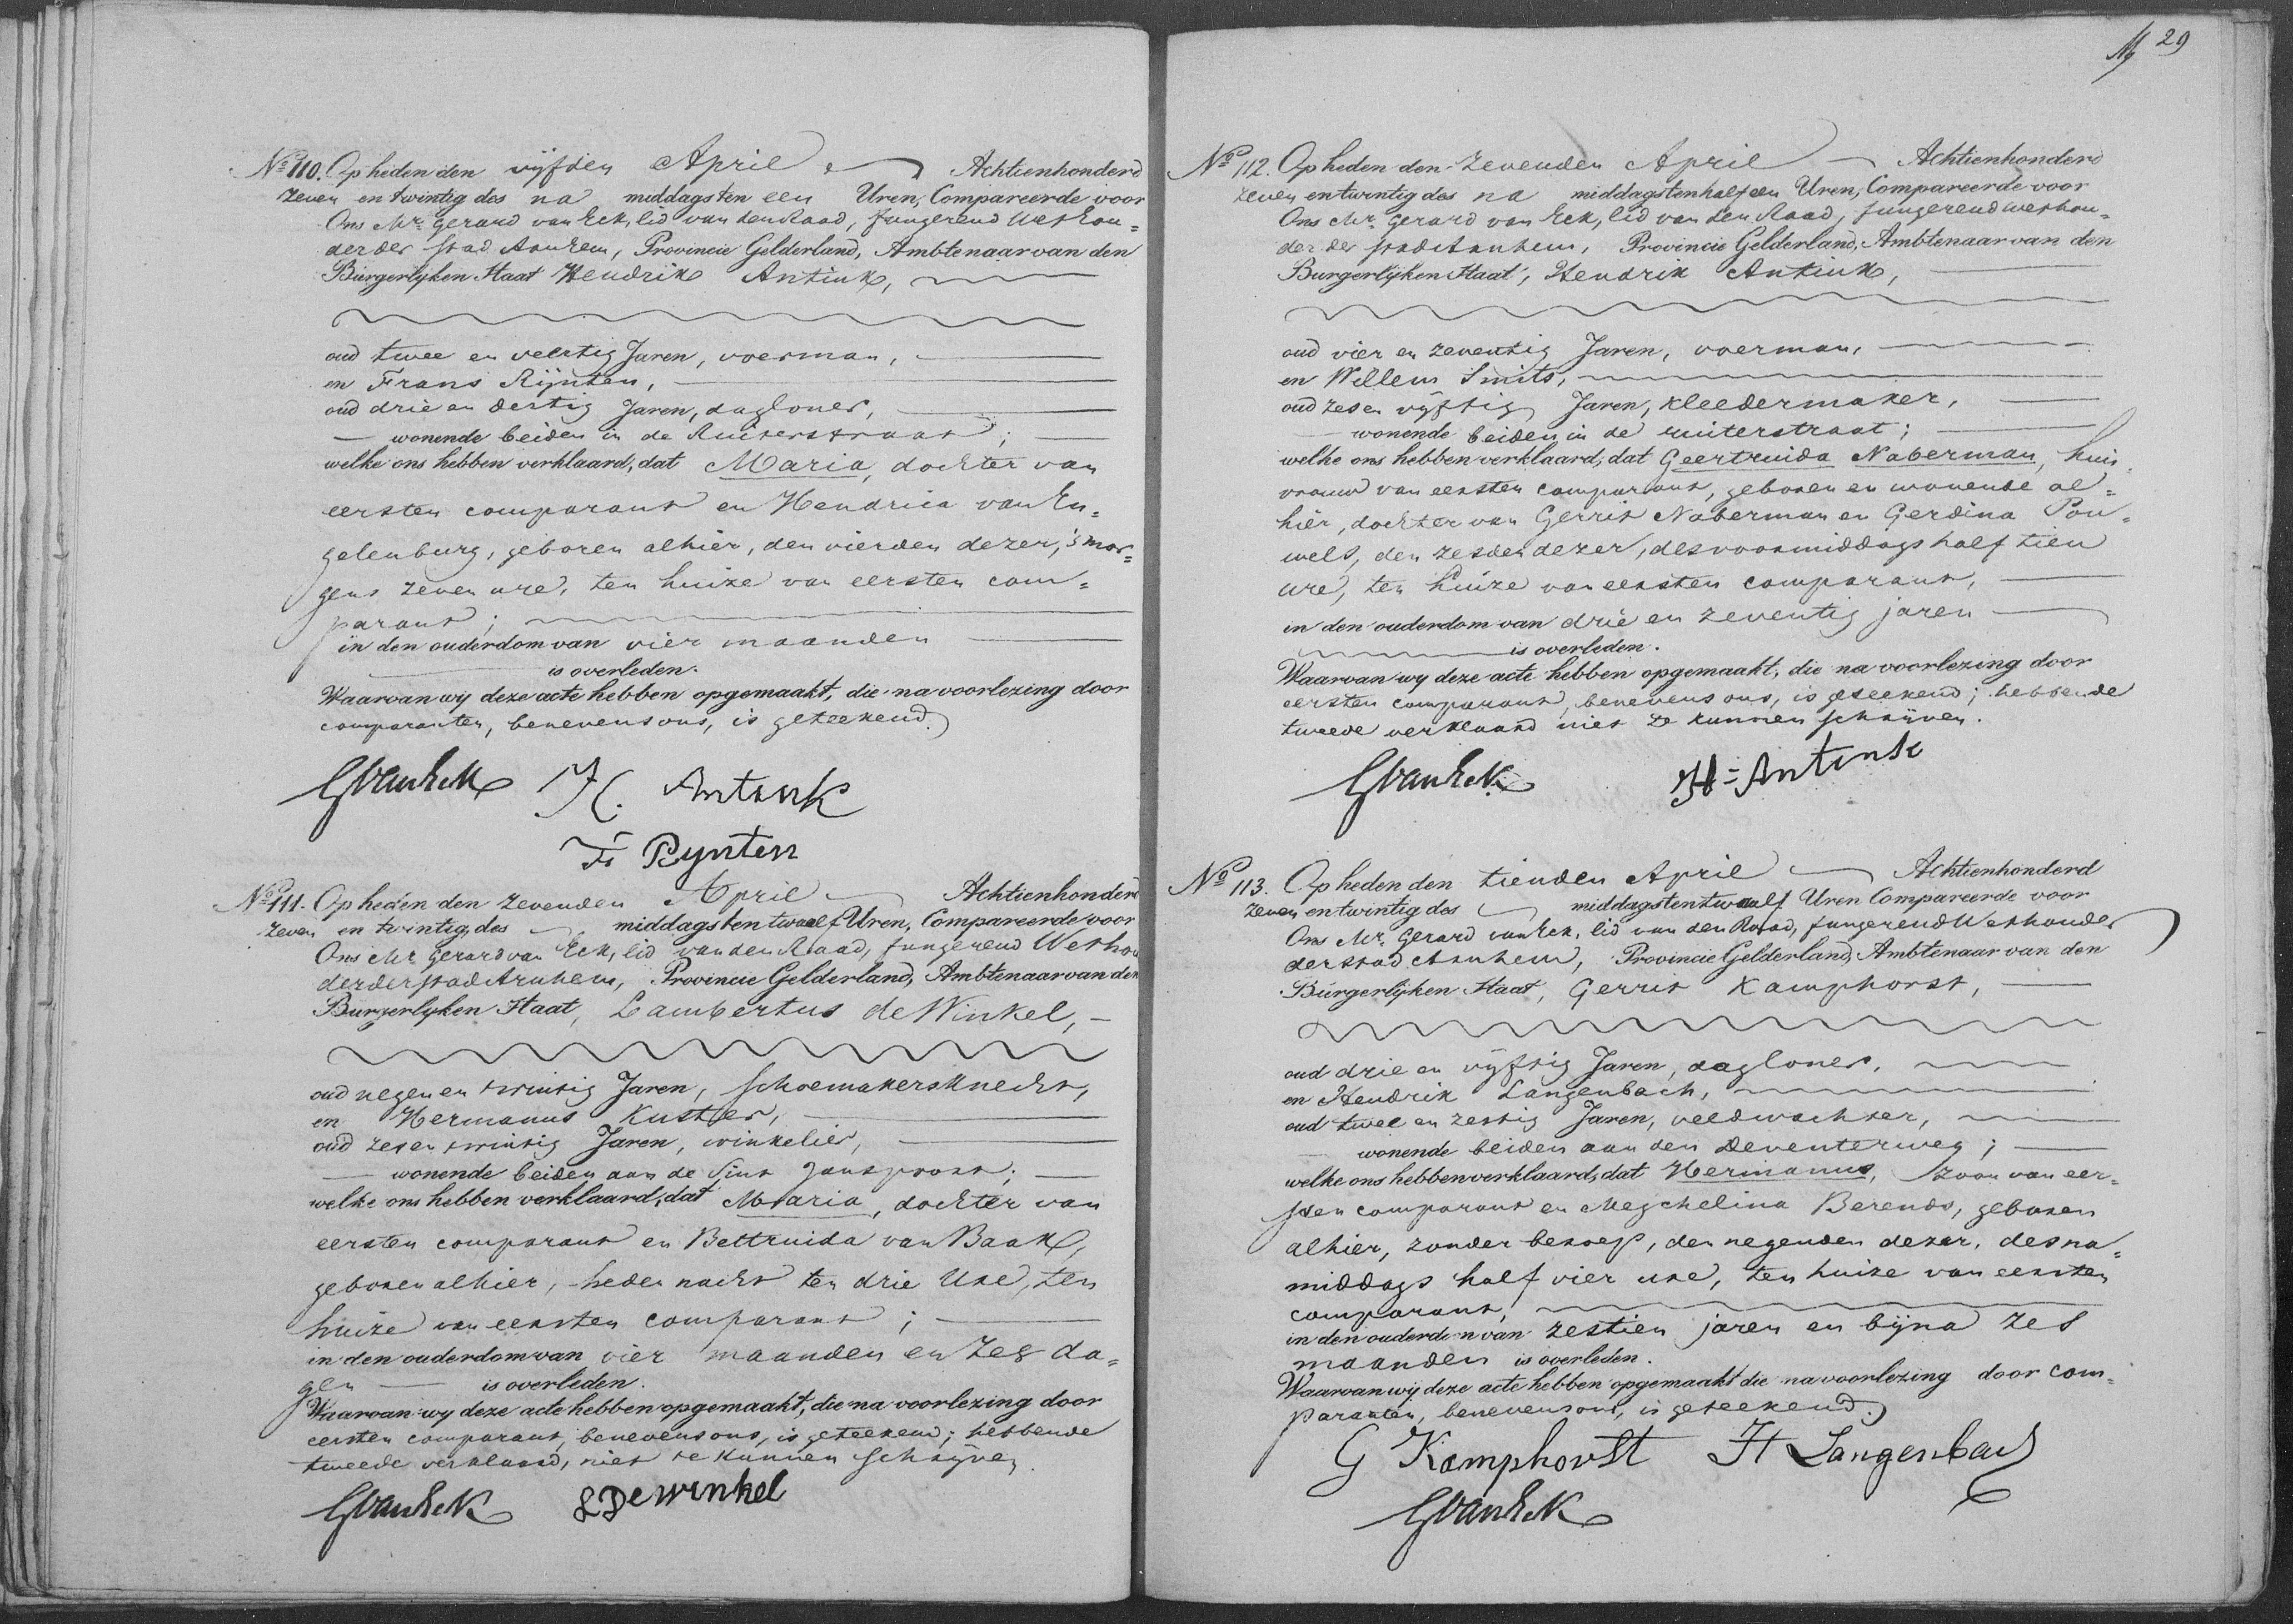 No 110. Op heden den vyfden April Achtienhonderd
zeven en twintig des na middags ten een Uren, Compareerde voor
Ons Mr. Gerard van Eck, lid van den Raad, fungerend Wethou=
der der stad Arnhem, Provincie Gelderland, Ambtenaar van den
Burgerlyken Staat Hendrik Antink,
oud twee en veertig Jaren, voerman,
en Frans Rijnten,
oud drie en dertig Jaren, dagloner,
wonende beiden in de Ruiterstraat;
welke ons hebben verklaard, dat Maria, dochter van
eersten comparant en Hendrica van En=
gelenburg, geboren alhier, den vierden dezer, 's mor=
gens zeven ure, ten huize van eersten com=
parant;
in den ouderdom van vier maanden
is overleden.
Waarvan wy deze acte hebben opgemaakt, die na voorlezing door
comparanten, benevens ons, is geteekend.
GvanEck H. Antink
F Rynten
No 111. Op heden den zevenden April Achtienhonderd
zeven en twintig des middags ten twaelf Uren, Compareerde voor
Ons Mr. Gerard van Eck, lid van den Raad, fungerend Wethou
der der stad Arnhem, Provincie Gelderland, Ambtenaar van den
Burgerlyken Staat, Lambertus de Winkel,
oud negen en twintig Jaren, schoemakersknecht,
en Hermanus Kuster,
oud zes en twintig Jaren, winkelier,
wonende beiden aan de Sint Janspoort;
welke ons hebben verklaard, dat Maria, dochter van
eersten comparant en Bettruida van Baak,
geboren alhier, heden nacht ten drie Ure, ten
huize van eersten comparant;
in den ouderdom van vier maanden en zes da=
gen is overleden.
Waarvan wy deze acte hebben opgemaakt, die na voorlezing door
eersten comparant, benevens ons, is geteekend; hebbende
tweede verklaard, niet te kunnen schrijven.
GvanEck L De Winkel
29
No 112. Op heden den zevenden April Achtienhonderd
zeven en twintig des na middags ten half een Uren, Compareerde voor
Ons Mr. Gerard van Eck, lid van den Raad, fungerend wethou=
der der stad Arnhem, Provincie Gelderland, Ambtenaar van den
Burgerlijken Staat, Hendrik Antink,
oud vier en zeventig Jaren, voerman,
en Willem Smits,
oud zes en vyftig Jaren, kleedermaker,
wonende beiden in de ruiterstraat;
welke ons hebben verklaard, dat Geertruida Naberman, huis=
vrouw van eersten comparant, geboren en wonende al=
hier, dochter van Gerrit Naberman en Gerdina Pou=
wels, den zesden dezer, des voormiddags half tien
ure, ten huize van eersten comparant,
in den ouderdom van drie en zeventig jaren
is overleden.
Waarvan wy deze acte hebben opgemaakt, die na voorlezing door
eersten comparant, benevens ons, is geteekend; hebbende
tweede verklaard niet te kunnen schrijven.
GvanEck H=Antink
No 113. Op heden den tienden April Achtienhonderd
zeven en twintig des middags ten twaalf Uren Compareerde voor
Ons Mr. Gerard van Eck, lid van den Raad, fungerend Wethouder
der stad Arnhem, Provincie Gelderland, Ambtenaar van den
Burgerlijken Staat, Gerrit Kamphorst,
oud drie en vyftig Jaren, dagloner,
en Hendrik Langenbach,
oud twee en zestig Jaren, veldwachter,
wonende beiden aan den Deventerweg;
welke ons hebben verklaard, dat Hermanus, zoon van eer=
sten comparant en Megchelina Berends, geboren
alhier, zonder beroep, den negenden dezer, des na=
middags half vier ure, ten huize van eersten
comparant,
in den ouderdom van zestien jaren en bijna zes
maanden is overleden.
Waarvan wij deze acte hebben opgemaakt die na voorlezing door com=
paranten, benevens ons, is geteekend.
G Kamphorst H Langenbach
GvanEck